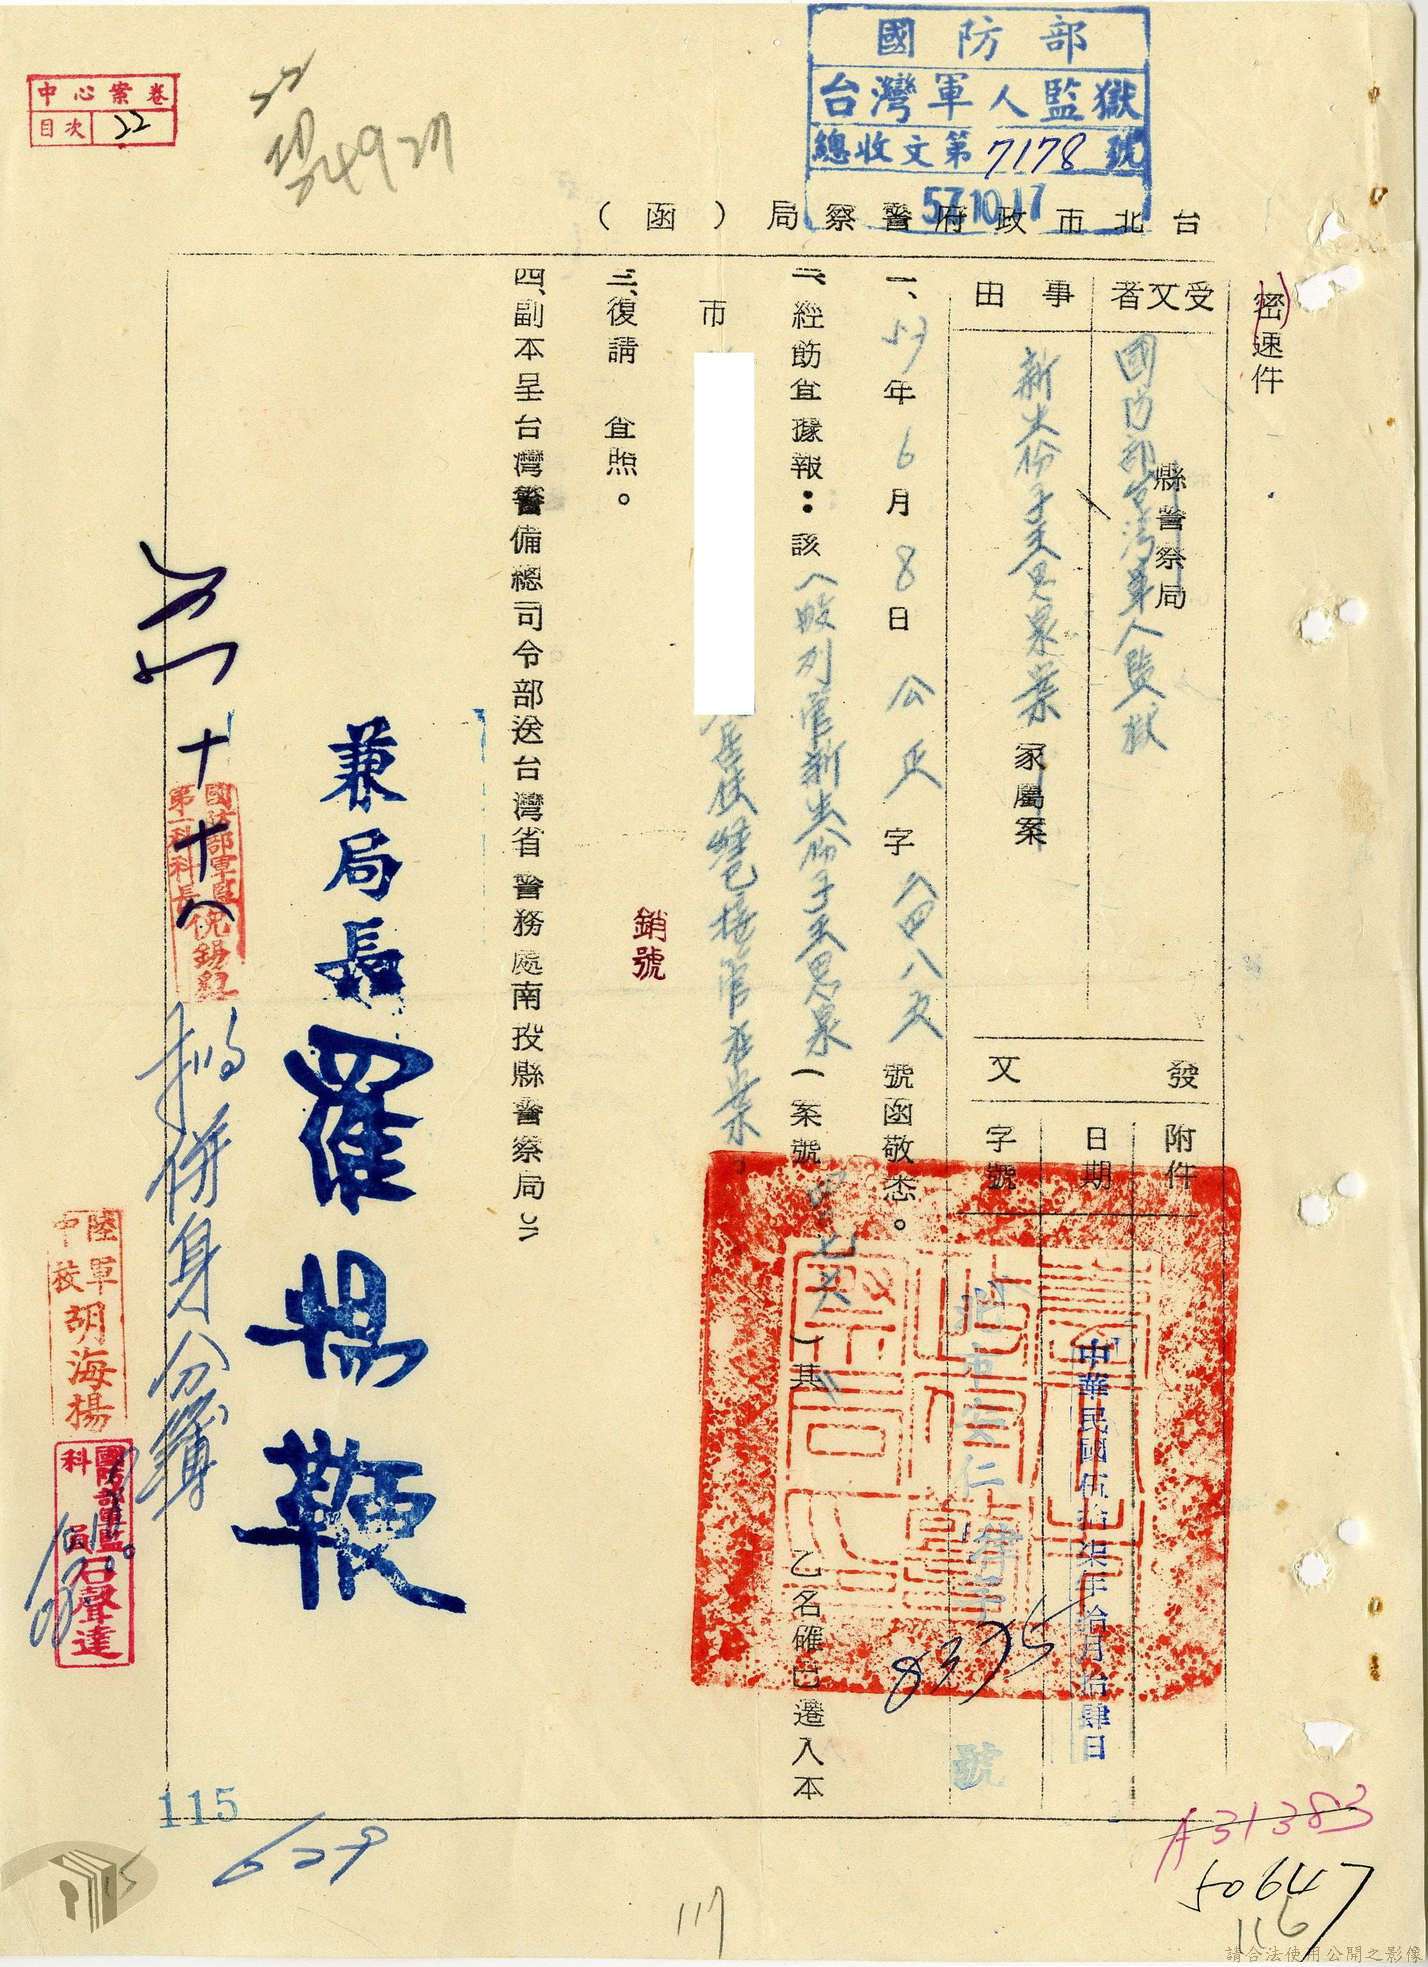 國防部
台灣軍人監獄
總收文第7178號
57.10.17
中心案卷
目次 22
台北市政府警察局（函）
密速件
受文者
國防部台灣軍人監獄
縣警察局
事由
新生份子王思泉案家屬案
發文
附件
日期
中華民國伍拾柒年拾月拾肆日
字號
北市安仁律字
8375
號
一、57年6月8日公正字 號函敬悉。
二、經飭查據報：該 列管新生份子王思泉（案號 ）其 乙名確已遷入本
市
居住經已接管在案
三、復請 查照。
四、副本呈台灣警備總司令部送台灣省警務處南投縣警察局
銷號
兼局長羅揚鞭
十
十八
國防部軍監
第一科科長
倪錫紅
擬併身分簿
陸軍
中校
胡海揚
國防部軍監
科員
石聲達
115
629
117
A31383
50647
116
請合法使用公開之影像